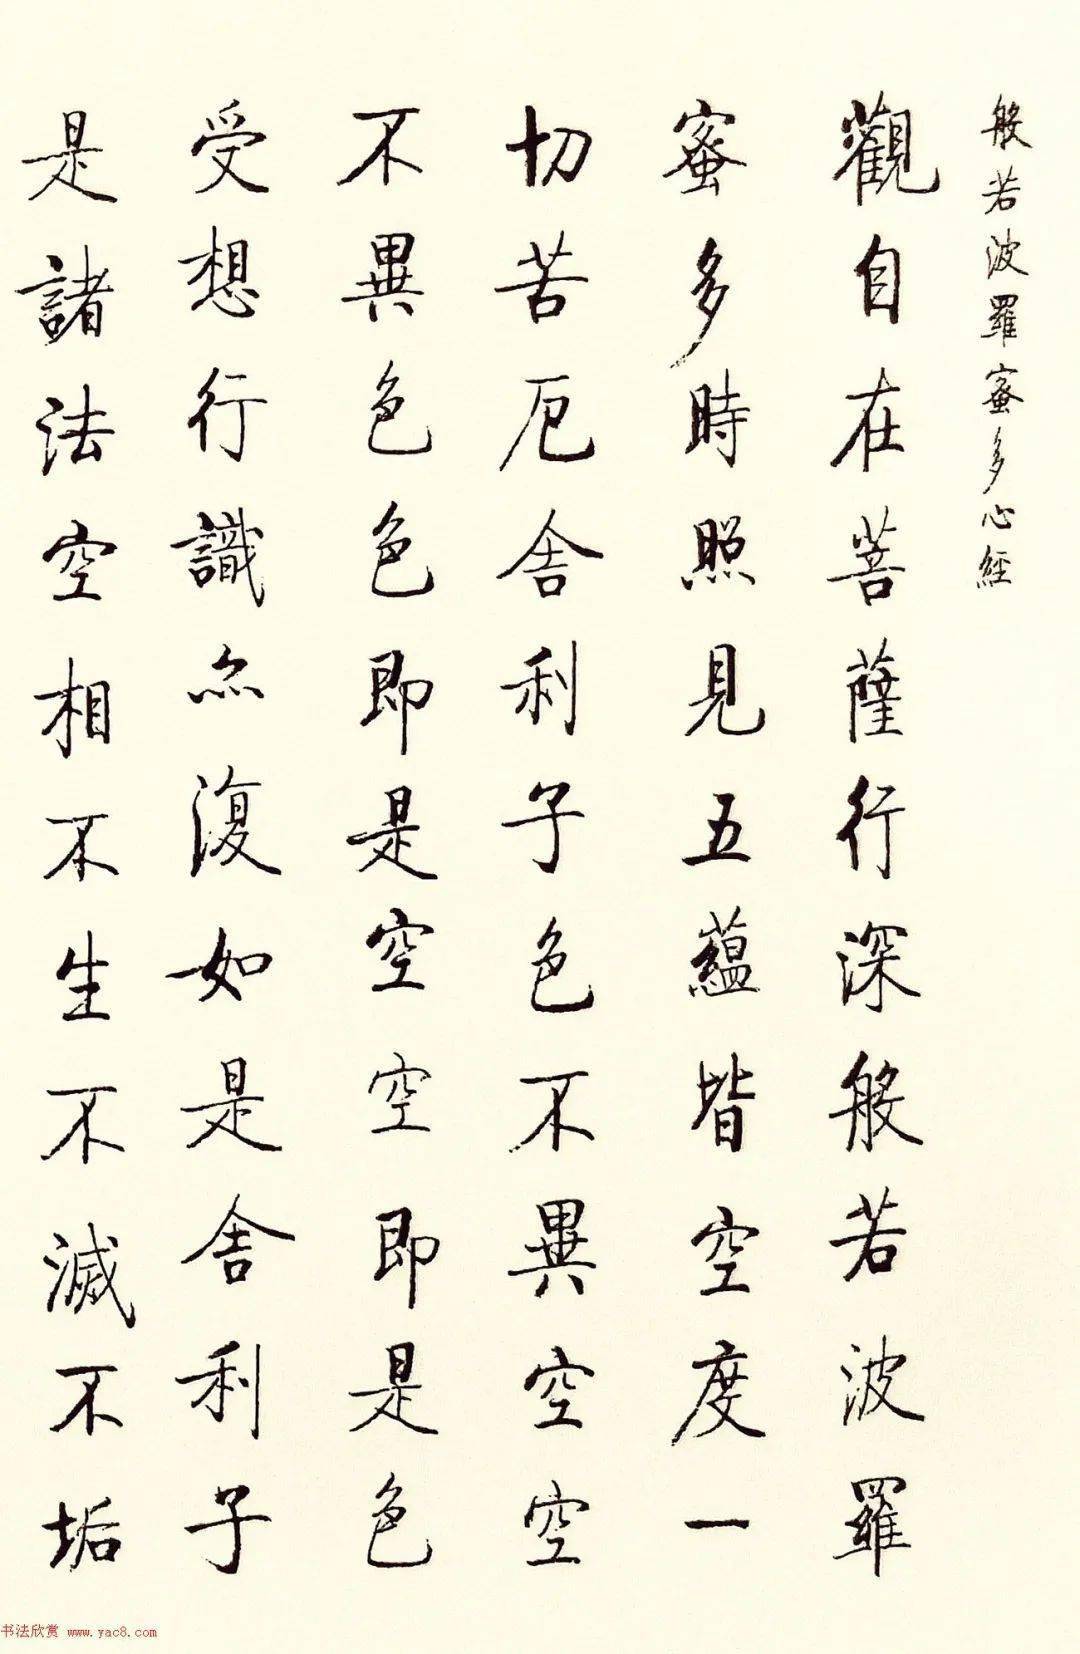 般若波羅蜜多心經
觀自在菩薩行深般若波羅
蜜多時照見五蘊皆空度一
切苦厄舍利子色不異空空
不異色色即是空空即是色
受想行識亦復如是舍利子
是諸法空相不生不滅不垢
书法欣赏 www.yac8.com